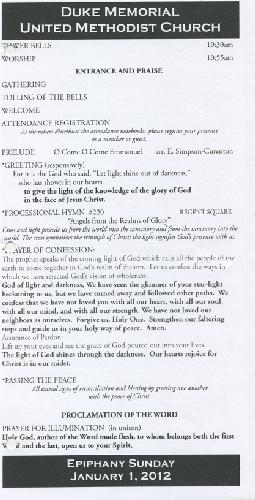 DUKE MEMORIAL
UNITED METHODIST CHURCH
TOWER BELLS 10:30am
WORSHIP 10:55am
ENTRANCE AND PRAISE
GATHERING
TOLLING OF THE BELLS
WELCOME
ATTENDANCE REGISTRATION
As the ushers distribute the attendance notebooks, please register your presence
as a member or guest.
PRELUDE O Come O Come Emmanuel arr. E. Simpson-Curenton
*GREETING (responsively)
For it is the God who said, "Let light shine out of darkness,"
who has shown in our hearts
to give the light of the knowledge of the glory of God
in the face of Jesus Christ.
*PROCESSIONAL HYMN #220 REGENT SQUARE
"Angels from the Realms of Glory"
Cross and light precede us from the world into the sanctuary and from the sanctuary into the
world. The cross symbolizes the triumph of Christ; the light signifies God's presence with us.
*PRAYER OF CONFESSION:
The prophet speaks of the coming light of God which calls all the people of the
earth to come together in God's realm of shalom. Let us confess the ways in
which we have greeted God's vision of wholeness:
God of light and darkness, We have seen the glimmer of your star-light
beckoning to us, but we have turned away and followed other paths. We
confess that we have not loved you with all our heart, with all our soul,
with all our mind, and with all our strength. We have not loved our
neighbors as ourselves. Forgive us, Holy One. Strengthen our faltering
steps and guide us in your holy way of peace. Amen.
Assurance of Pardon:
Lift up your eyes and see the grace of God poured out into your lives.
The light of God shines through the darkness. Our hearts rejoice for
Christ is in our midst.
*PASSING THE PEACE
All extend signs of reconciliation and blessing by greeting one another
with the peace of Christ.
PROCLAMATION OF THE WORD
PRAYER FOR ILLUMINATION (in unison)
Holy God, author of the Word made flesh, to whom belongs both the first
Word and the last, open us to your Spirit.
EPIPHANY SUNDAY
JANUARY 1, 2012